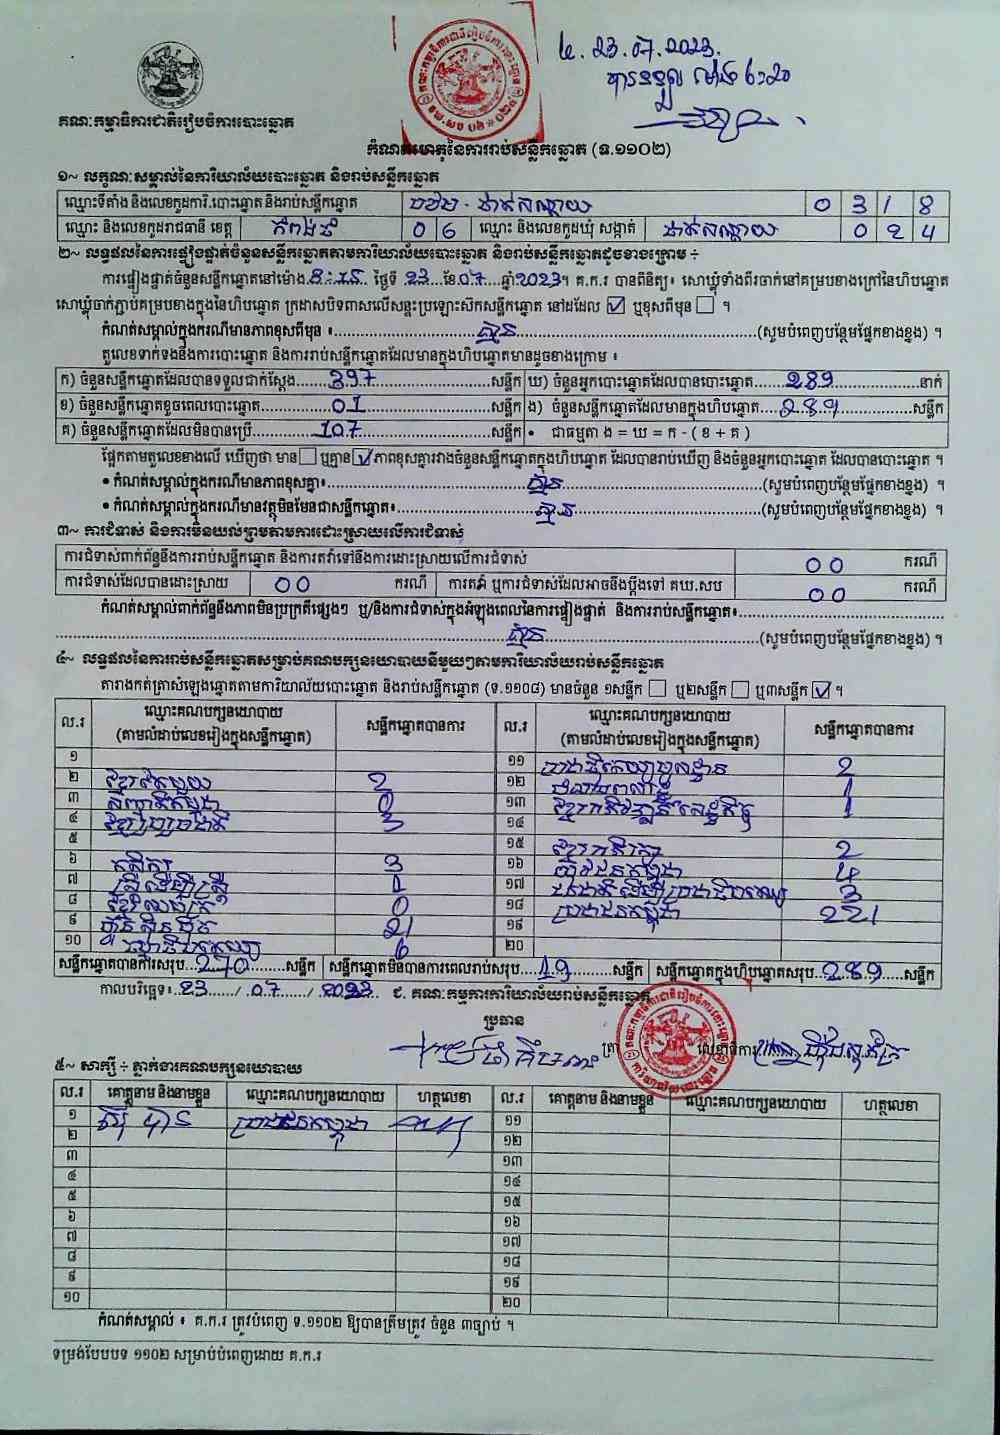 ថ. 23.07.2023.
បានទទួល ម៉ោង 6:20
គណៈកម្មាធិការជាតិរៀបចំការបោះឆ្នោត
កំណត់ហេតុនៃការរាប់សន្លឹកឆ្នោត (ទ.១១០២)
១~ លក្ខណៈសម្គាល់នៃការិយាល័យបោះឆ្នោត និងរាប់សន្លឹកឆ្នោត
ឈ្មោះទីតាំង និងលេខកូដការិ.បោះឆ្នោត និងរាប់សន្លឹកឆ្នោត 0 3 1 8
ឈ្មោះ និងលេខកូដរាជធានី ខេត្ត កំពង់ធំ 0 6 ឈ្មោះ និងលេខកូដឃុំ សង្កាត់ 0 2 4
២~ លទ្ធផលនៃការផ្ទៀងផ្ទាត់ចំនួនសន្លឹកឆ្នោតតាមការិយាល័យបោះឆ្នោត និងរាប់សន្លឹកឆ្នោតដូចខាងក្រោម ÷
ការផ្ទៀងផ្ទាត់ចំនួនសន្លឹកឆ្នោតនៅម៉ោង 8:15 ថ្ងៃទី 23 ខែ 07 ឆ្នាំ 2023។ គ.ក.រ បានពិនិត្យ៖ សោឃ្លុំទាំងពីរចាក់នៅគម្របខាងក្រៅនៃហិបឆ្នោត
សោឃ្លុំចាក់ភ្ជាប់គម្របខាងក្នុងនៃហិបឆ្នោត ក្រដាសបិទពាសលើសន្ទះប្រឡោះស៊កសន្លឹកឆ្នោត នៅដដែល ☑ ឬខុសពីមុន ☐ ។
កំណត់សម្គាល់ក្នុងករណីមានភាពខុសពីមុន ៖ គ្មាន (សូមបំពេញបន្ថែមផ្នែកខាងខ្នង) ។
តួលេខទាក់ទងនឹងការបោះឆ្នោត និងការរាប់សន្លឹកឆ្នោតដែលមានក្នុងហិបឆ្នោតមានដូចខាងក្រោម ៖
ក) ចំនួនសន្លឹកឆ្នោតដែលបានទទួលជាក់ស្តែង 397 សន្លឹក ឃ) ចំនួនអ្នកបោះឆ្នោតដែលបានបោះឆ្នោត 289 នាក់
ខ) ចំនួនសន្លឹកឆ្នោតខូចពេលបោះឆ្នោត 01 សន្លឹក ង) ចំនួនសន្លឹកឆ្នោតដែលមានក្នុងហិបឆ្នោត 289 សន្លឹក
គ) ចំនួនសន្លឹកឆ្នោតដែលមិនបានប្រើ 107 សន្លឹក • ជាធម្មតា ង = ឃ = ក - ( ខ + គ )
ផ្អែកតាមតួលេខខាងលើ ឃើញថា មាន ☐ ឬគ្មាន ☑ ភាពខុសគ្នារវាងចំនួនសន្លឹកឆ្នោតក្នុងហិបឆ្នោត ដែលបានរាប់ឃើញ និងចំនួនអ្នកបោះឆ្នោត ដែលបានបោះឆ្នោត ។
• កំណត់សម្គាល់ក្នុងករណីមានភាពខុសគ្នា៖ គ្មាន (សូមបំពេញបន្ថែមផ្នែកខាងខ្នង) ។
• កំណត់សម្គាល់ក្នុងករណីមានវត្ថុមិនមែនជាសន្លឹកឆ្នោត៖ គ្មាន (សូមបំពេញបន្ថែមផ្នែកខាងខ្នង) ។
៣~ ការជំទាស់ និងការមិនយល់ព្រមតាមការដោះស្រាយលើការជំទាស់
ការជំទាស់ពាក់ព័ន្ធនឹងការរាប់សន្លឹកឆ្នោត និងការតវ៉ាទៅនឹងការដោះស្រាយលើការជំទាស់ 00 ករណី
ការជំទាស់ដែលបានដោះស្រាយ 00 ករណី ការតវ៉ា ឬការជំទាស់ដែលអាចនឹងប្តឹងទៅ គឃ.សប 00 ករណី
កំណត់សម្គាល់ពាក់ព័ន្ធនឹងភាពមិនប្រក្រតីផ្សេងៗ ឬ/និងការជំទាស់ក្នុងអំឡុងពេលនៃការផ្ទៀងផ្ទាត់ និងការរាប់សន្លឹកឆ្នោត៖
គ្មាន (សូមបំពេញបន្ថែមផ្នែកខាងខ្នង) ។
៤~ លទ្ធផលនៃការរាប់សន្លឹកឆ្នោតសម្រាប់គណបក្សនយោបាយនីមួយៗតាមការិយាល័យរាប់សន្លឹកឆ្នោត
តារាងកត់ត្រាសំឡេងឆ្នោតតាមការិយាល័យបោះឆ្នោត និងរាប់សន្លឹកឆ្នោត (ទ.១១០៨) មានចំនួន ១សន្លឹក ☐ ឬ២សន្លឹក ☐ ឬ៣សន្លឹក ☑ ។
ល.រ ឈ្មោះគណបក្សនយោបាយ (តាមលំដាប់លេខរៀងក្នុងសន្លឹកឆ្នោត) សន្លឹកឆ្នោតបានការ ល.រ ឈ្មោះគណបក្សនយោបាយ (តាមលំដាប់លេខរៀងក្នុងសន្លឹកឆ្នោត) សន្លឹកឆ្នោតបានការ
១ ១១ ប្រជាធិបតេយ្យមូលដ្ឋាន 2
២ ខ្មែរតែមួយ 2 ១២ 1
៣ 0 ១៣ ខ្មែរអភិវឌ្ឍន៍សេដ្ឋកិច្ច 1
៤ 3 ១៤
៥ ១៥ 2
៦ កសិករ 3 ១៦ យុវជនកម្ពុជា 4
៧ ស្ត្រីដើម្បីស្ត្រី 1 ១៧ 3
៨ 0 ១៨ ប្រជាជនកម្ពុជា 221
៩ ហ៊្វុនស៊ិនប៉ិច 21 ១៩
១០ 6 ២០
សន្លឹកឆ្នោតបានការសរុប 270 សន្លឹក សន្លឹកឆ្នោតមិនបានការពេលរាប់សរុប 19 សន្លឹក សន្លឹកឆ្នោតក្នុងហិបឆ្នោតសរុប 289 សន្លឹក
កាលបរិច្ឆេទ៖ 23 / 07 / 2023 ជ. គណៈកម្មការការិយាល័យរាប់សន្លឹកឆ្នោត
ប្រធាន
ត្រា លេខាធិការ
៥~ សាក្សី ÷ ភ្នាក់ងារគណបក្សនយោបាយ
ល.រ គោត្តនាម និងនាមខ្លួន ឈ្មោះគណបក្សនយោបាយ ហត្ថលេខា ល.រ គោត្តនាម និងនាមខ្លួន ឈ្មោះគណបក្សនយោបាយ ហត្ថលេខា
១ ប្រជាជនកម្ពុជា ១១
២ ១២
៣ ១៣
៤ ១៤
៥ ១៥
៦ ១៦
៧ ១៧
៨ ១៨
៩ ១៩
១០ ២០
កំណត់សម្គាល់ ៖ គ.ក.រ ត្រូវបំពេញ ទ.១១០២ ឱ្យបានត្រឹមត្រូវ ចំនួន ៣ច្បាប់ ។
ទម្រង់បែបបទ ១១០២ សម្រាប់បំពេញដោយ គ.ក.រ